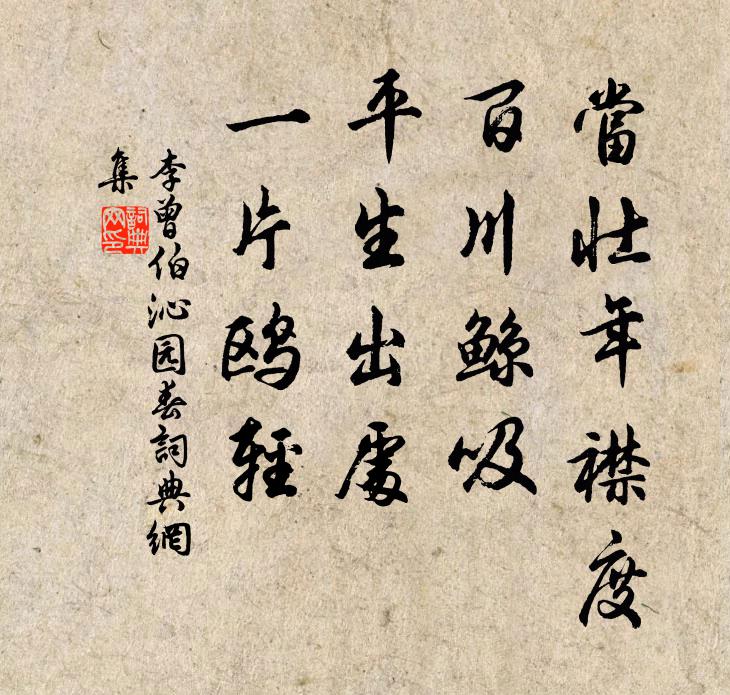 當壯年襟度
百川鯨吸
平生出處
一片鸥輕
李曾伯沁园春詞典網
集
詞典
网印